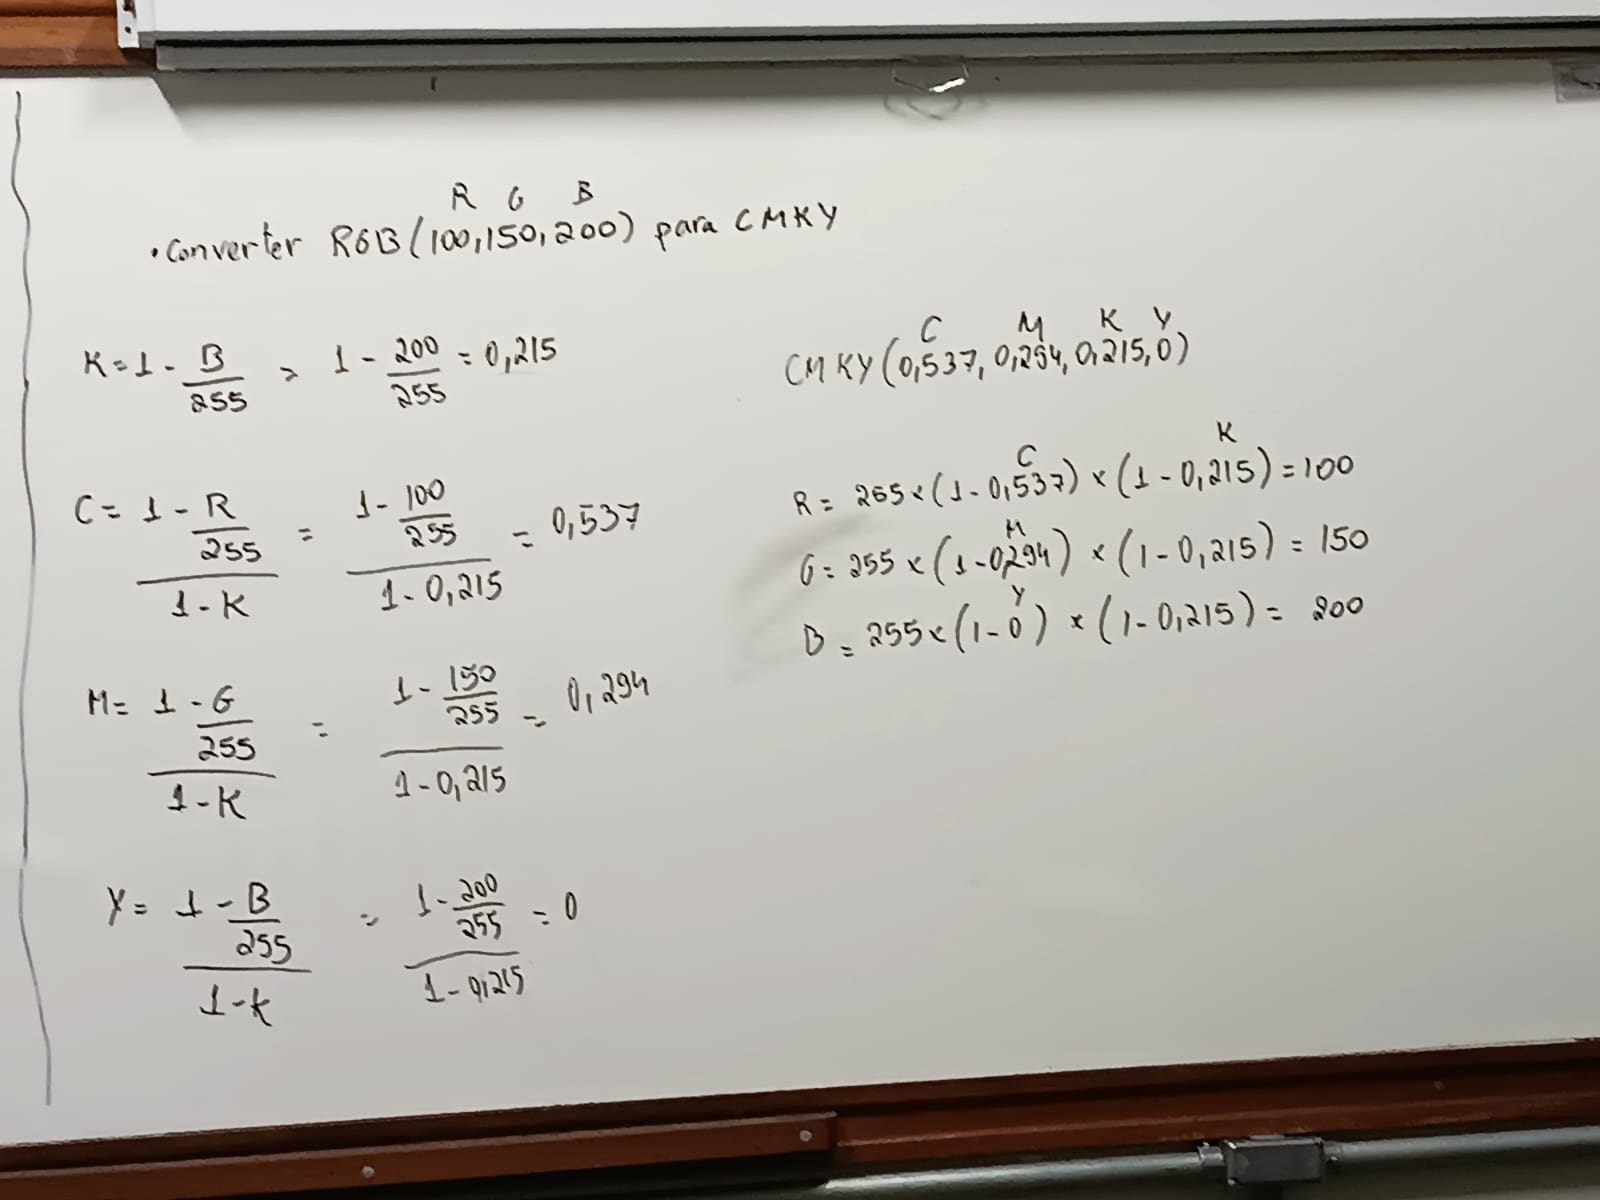 R G B
• Converter RGB(100,150,200) para CMKY
K=1-B/255 > 1-200/255=0,215
C=1-R/255/1-K=1-100/255/1-0,215=0,537
M=1-G/255/1-K=1-150/255/1-0,215=0,294
Y=1-B/255/1-K=1-200/255/1-0,215=0
C M K Y
CMKY(0,537,0,294,0,215,0)
C K
R=255×(1-0,537)×(1-0,215)=100
M
G=255×(1-0,294)×(1-0,215)=150
Y
B=255×(1-0)×(1-0,215)=200